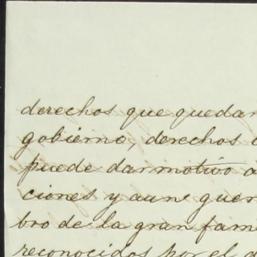 derechos que quedan
gobierno, derechos
puede dar motivo a
ciones y aun guer
bro de la gran fam
reconocidos por el